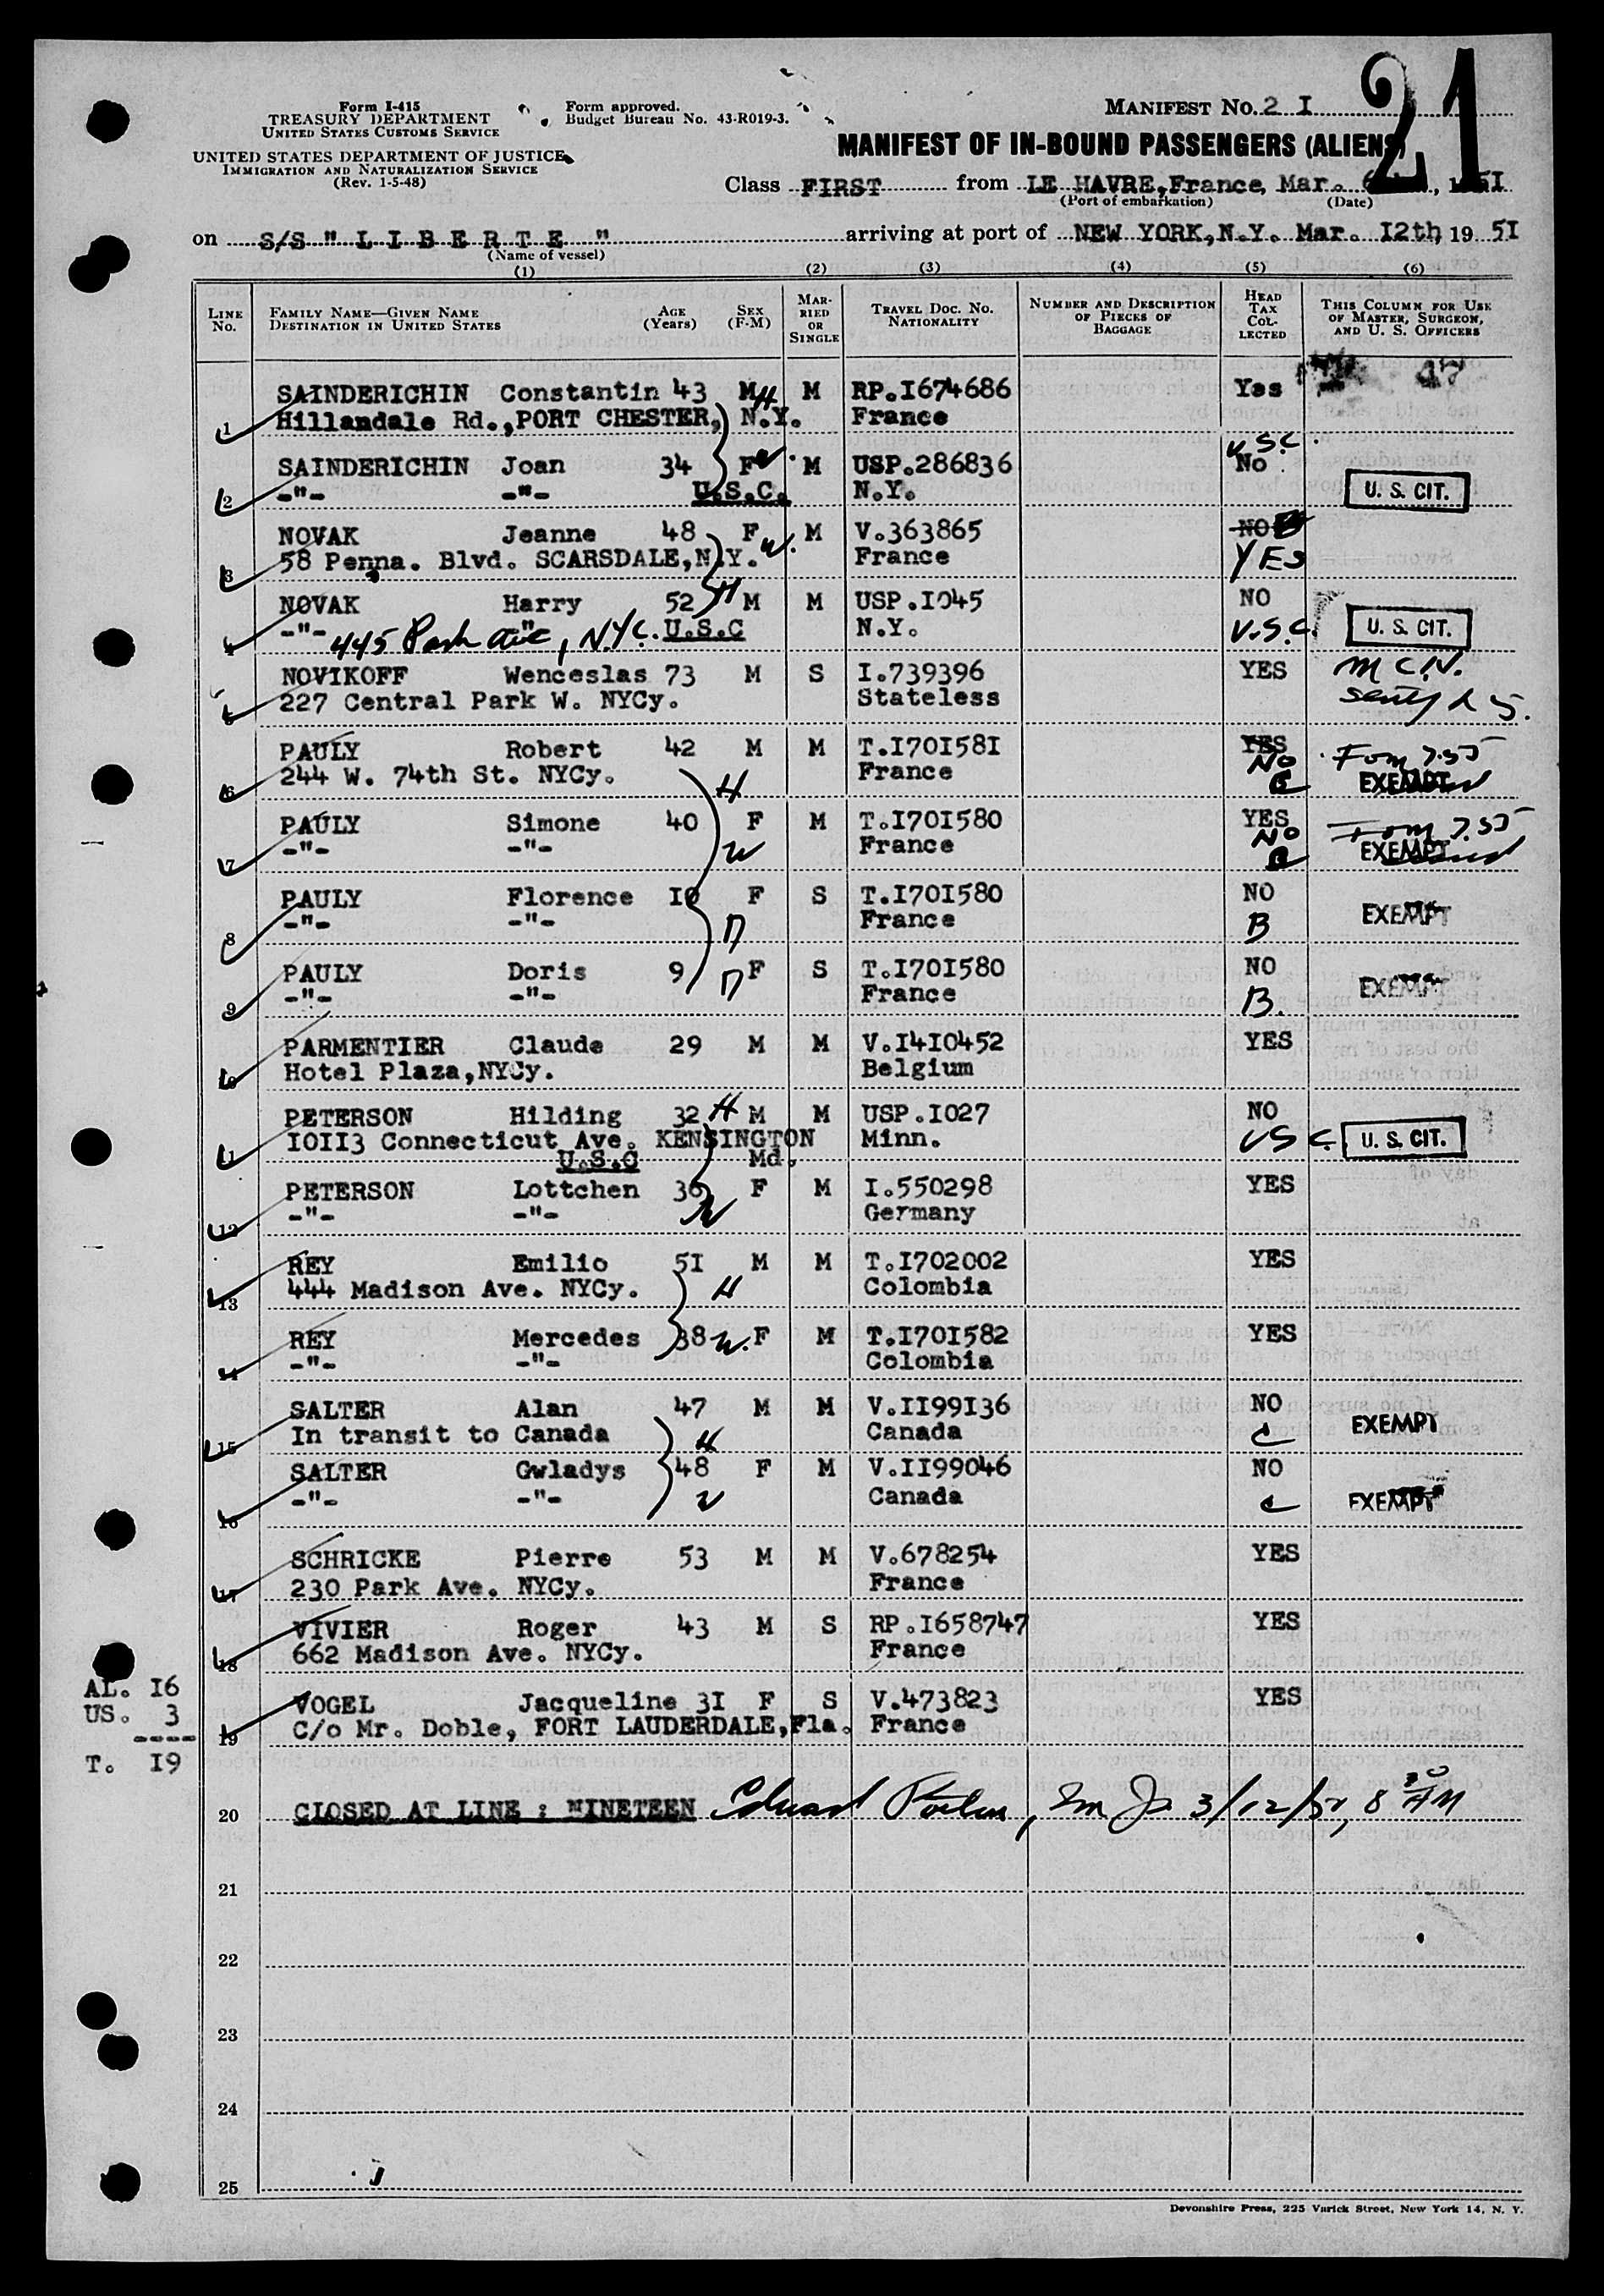 21
Form I-415
TREASURY DEPARTMENT
UNITED STATES CUSTOMS SERVICE
UNITED STATES DEPARTMENT OF JUSTICE
IMMIGRATION AND NATURALIZATION SERVICE
(Rev. 1-5-48)
Form approved.
Budget Bureau No. 43-R019-3.
MANIFEST NO. 2 I
MANIFEST OF IN-BOUND PASSENGERS (ALIENS)
Class FIRST from LE HAVRE, France, Mar. , 1951
(Port of embarkation) (Date)
on S/S " L I B E R T E " arriving at port of NEW YORK, N.Y. Mar. I2th, 19 5I
(Name of vessel)
(1) (2) (3) (4) (5) (6)
LINE No. FAMILY NAME—GIVEN NAME DESTINATION IN UNITED STATES AGE (Years) SEX (F-M) MARRIED OR SINGLE TRAVEL DOC. NO. NATIONALITY NUMBER AND DESCRIPTION OF PIECES OF BAGGAGE HEAD TAX COLLECTED THIS COLUMN FOR USE OF MASTER, SURGEON, AND U. S. OFFICERS
SAINDERICHIN Constantin 43 M H M RP.I674686 Yes
1 Hillandale Rd., PORT CHESTER, N.Y. France
SAINDERICHIN Joan 34 F W. M USP.286836 U.S.C. No
2 -"- -"- U.S.C. N.Y. U. S. CIT.
NOVAK Jeanne 48 F W. M V.363865 NO
3 58 Penna. Blvd. SCARSDALE, N.Y. France YES
NOVAK Harry 52 H M M USP.I045 NO
4 -"- -"- 445 Park Ave, N.Y.C. U.S.C N.Y. U.S.C. U. S. CIT.
NOVIKOFF Wenceslas 73 M S I.739396 YES M C.N.
5 227 Central Park W. NYCy. Stateless
PAULY Robert 42 M M T.I70I58I YES NO
6 244 W. 74th St. NYCy. H France EXEMPT
PAULY Simone 40 F M T.I70I580 YES NO
7 -"- -"- W France EXEMPT
PAULY Florence I0 F S T.I70I580 NO
8 -"- -"- D France B EXEMPT
PAULY Doris 9 F S T.I70I580 NO
9 -"- -"- D France B. EXEMPT
PARMENTIER Claude 29 M M V.I4I0452 YES
10 Hotel Plaza, NYCy. Belgium
PETERSON Hilding 32 H M M USP.I027 NO
11 I0II3 Connecticut Ave. KENSINGTON Minn. USC. U. S. CIT.
U.S.C Md.
PETERSON Lottchen 36 F M I.550298 YES
12 -"- -"- W Germany
REY Emilio 5I M M T.I702002 YES
13 444 Madison Ave. NYCy. H Colombia
REY Mercedes 38 W. F M T.I70I582 YES
14 -"- -"- Colombia
SALTER Alan 47 M M V.II99I36 NO
15 In transit to Canada H Canada C EXEMPT
SALTER Gwladys 48 F M V.II99046 NO
16 -"- -"- W Canada C EXEMPT
SCHRICKE Pierre 53 M M V.678254 YES
17 230 Park Ave. NYCy. France
VIVIER Roger 43 M S RP.I658747 YES
18 662 Madison Ave. NYCy. France
VOGEL Jacqueline 3I F S V.473823 YES
19 C/o Mr. Doble, FORT LAUDERDALE, Fla. France
AL. I6
US. 3
----
T. I9
20 CLOSED AT LINE : NINETEEN 3/12/51, 8 30 AM
21
22
23
24
25
Devonshire Press, 225 Varick Street, New York 14, N. Y.